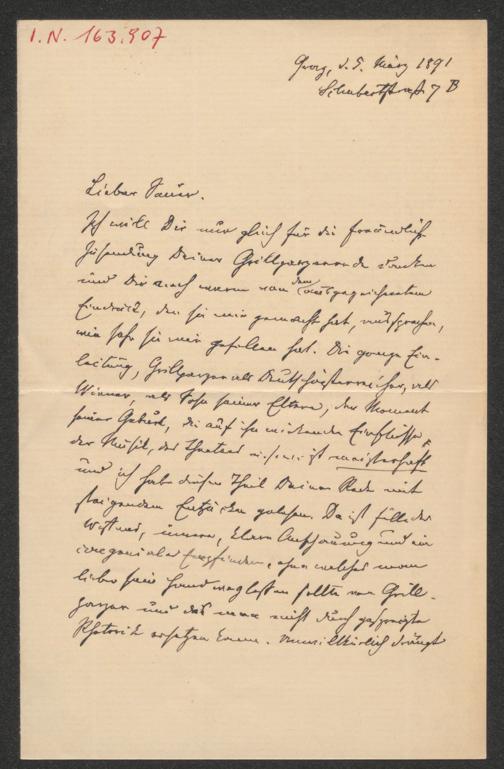 I.N. 163.907
Graz, d. 5. März 1891
Schubertstraße 7 B
Lieber Sauer.
Ich will Dir nur gleich für die freundliche
Zusendung Deiner Grillparzerrede danken
und Dir noch warm von dem ausgezeichneten
Eindruck, den sie mir gemacht hat, aussprechen,
wie sehr sie mir gefallen hat. Die ganze Ein-
leitung, Grillparzer als Deutschösterreicher, als
Wiener, als Sohn seiner Eltern, der Moment
seiner Geburt, die auf ihn wirkenden Einflüsse
der Musik, des Theaters ist meisterhaft
und ich habe diesen Theil Deiner Rede mit
steigendem Entzücken gelesen. Da ist Fülle des
Wissens, innere, klare Anschauung und ein
congeniales Empfinden, ohne welches man
lieber seine Hand weglassen sollte von Grill-
parzer und das man nicht durch gespreizte
Rhetorik ersetzen kann. Unwillkürlich drängt